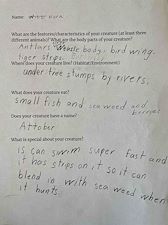 Name:
What are the features/characteristics of your creature (at least three
different animals)? What are the body parts of your creature?
Antlars Weasle body, bird wing
tiger strips.
Where does your creature live? (Habitat/Environment)
under tree stumps by rivers.
What does your creature eat?
small fish and sea weed and
berries
Does your creature have a name?
Attober
What is special about your creature?
is can swim super fast and
it has strips on it so it can
blend in with sea weed when
it hunts.